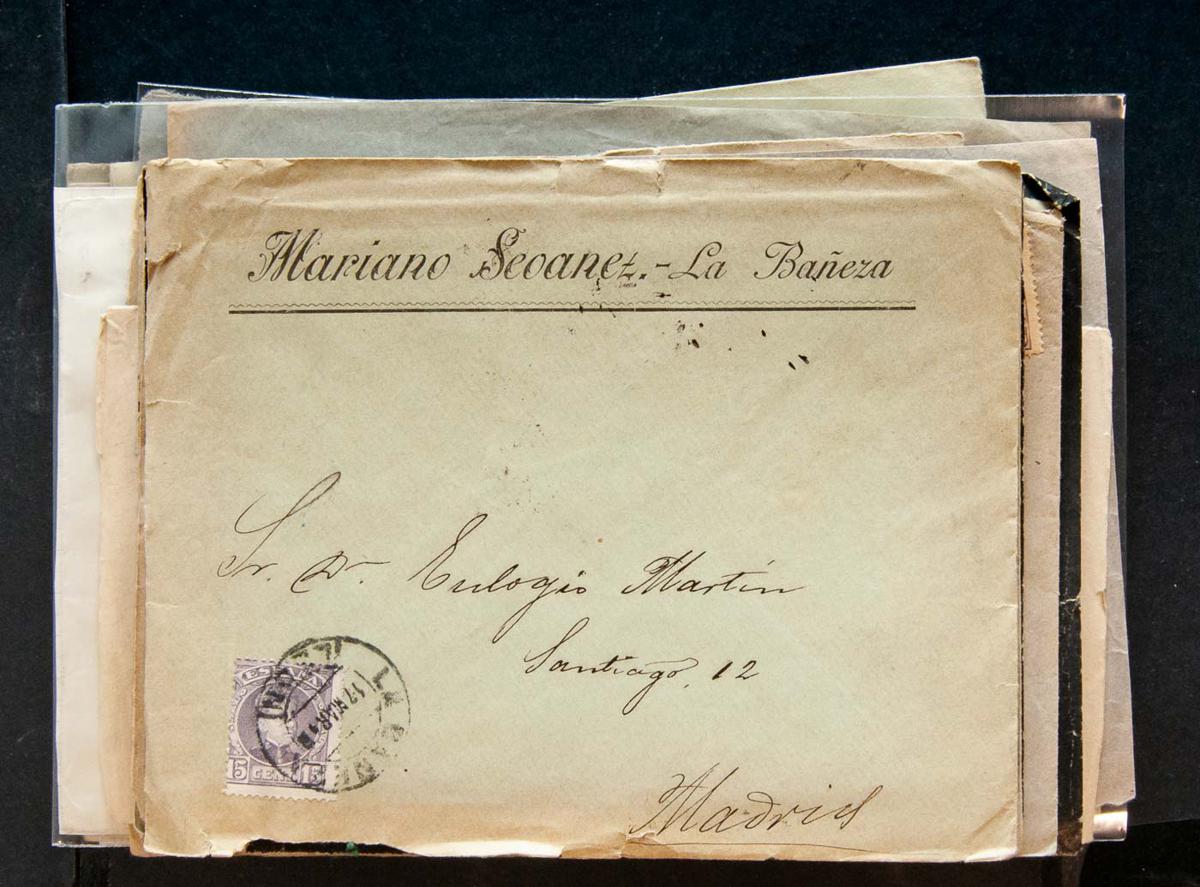 Mariano Seoanez.-La Bañeza
Sr. Dr. Eulogio Martín
Santiago, 12
Madrid
ESPAÑA
15 CENT 15
LA BAÑEZA
(LEON)
17 MAR